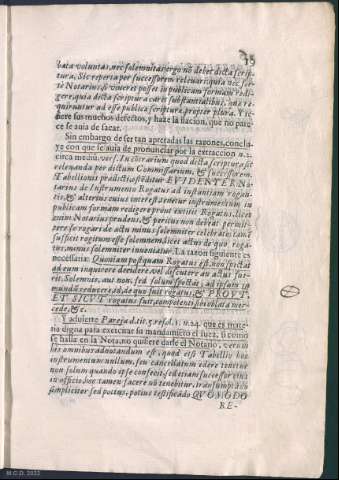 39
bata voluntas, nec solemnitas: ergo no debet dicta scrip-
tura. Sic reperta per successorem relevari: quia nec ser
te Notarius, si viveret posset in publicam formam redi-
gere, quia dicta scriptura caret substantialibus, quæ re-
quiruntur ad esse publicæ scripturæ propter plura. Y re
fiere sus muchos defectos, y haze la ilacion, que no pare
ce se auia de sacar.
Sin embargo de ser tan apretadas las razones, conclu-
ye con que se auia de pronunciar por la extraccion n. 2.
circa mediũ, ver. In contrarium quod dicta scriptura sit
relevanda per dictum Commissarium, & successorem
Tabellionis prædicti, ostẽditur EVIDENTER No
tarius de Instrumento Rogatus ad instantiam rogan-
tis, & alterius cuius interest tenetur instrumentum in
publicam formam redigere prout extitit Rogatus, licet
enim Notarius prudens, & peritus non debeat permit-
tere se rogari de actu minus solemniter celebrato: tamẽ
suscepit rogitum esse solemnem, licet actus de quo roga-
tur, minus solemniter inveniatur. La razon siguiente es
necessaria: Quoniam postquam Rogatus est, non spectat
ad eum inquirere decidere, vel discutere an actus fue-
rit. Solemnis, aut non, sed solum spectat, ad ipsum in
mundũ reducere id, de quo fuit rogatus, & PROVT,
ET SICVT rogatus fuit, competenti sibi soluta mer-
cede, &c.
Y aduierte Pareja d. tit. 5. resol. 5. n. 24. que es mate-
ria digna para executar su mandamiento el Iuez, si como
se halla en la Nota, no quisiere darle el Notario, verum
his omnibus adnotandum est, quod etsi Tabellio hoc
instrumentum nullum, seu cancellatum edere tenetur
non solum quando ipse confecit, sed etiam successor eius
in officio hoc tamen facere vò tenebitur, transumptado
simpliciter sed potius, potius testificado QVOMODO
RE-
M.C.D. 2022